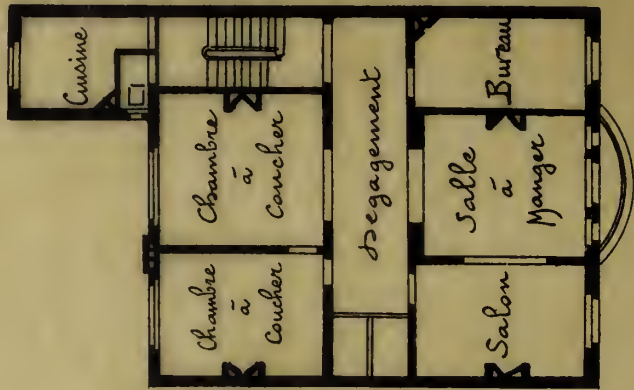 Cuisine
Chambre
à
Coucher
Chambre
à
Coucher
Dégagement
Bureau
Salle
à
Manger
Salon